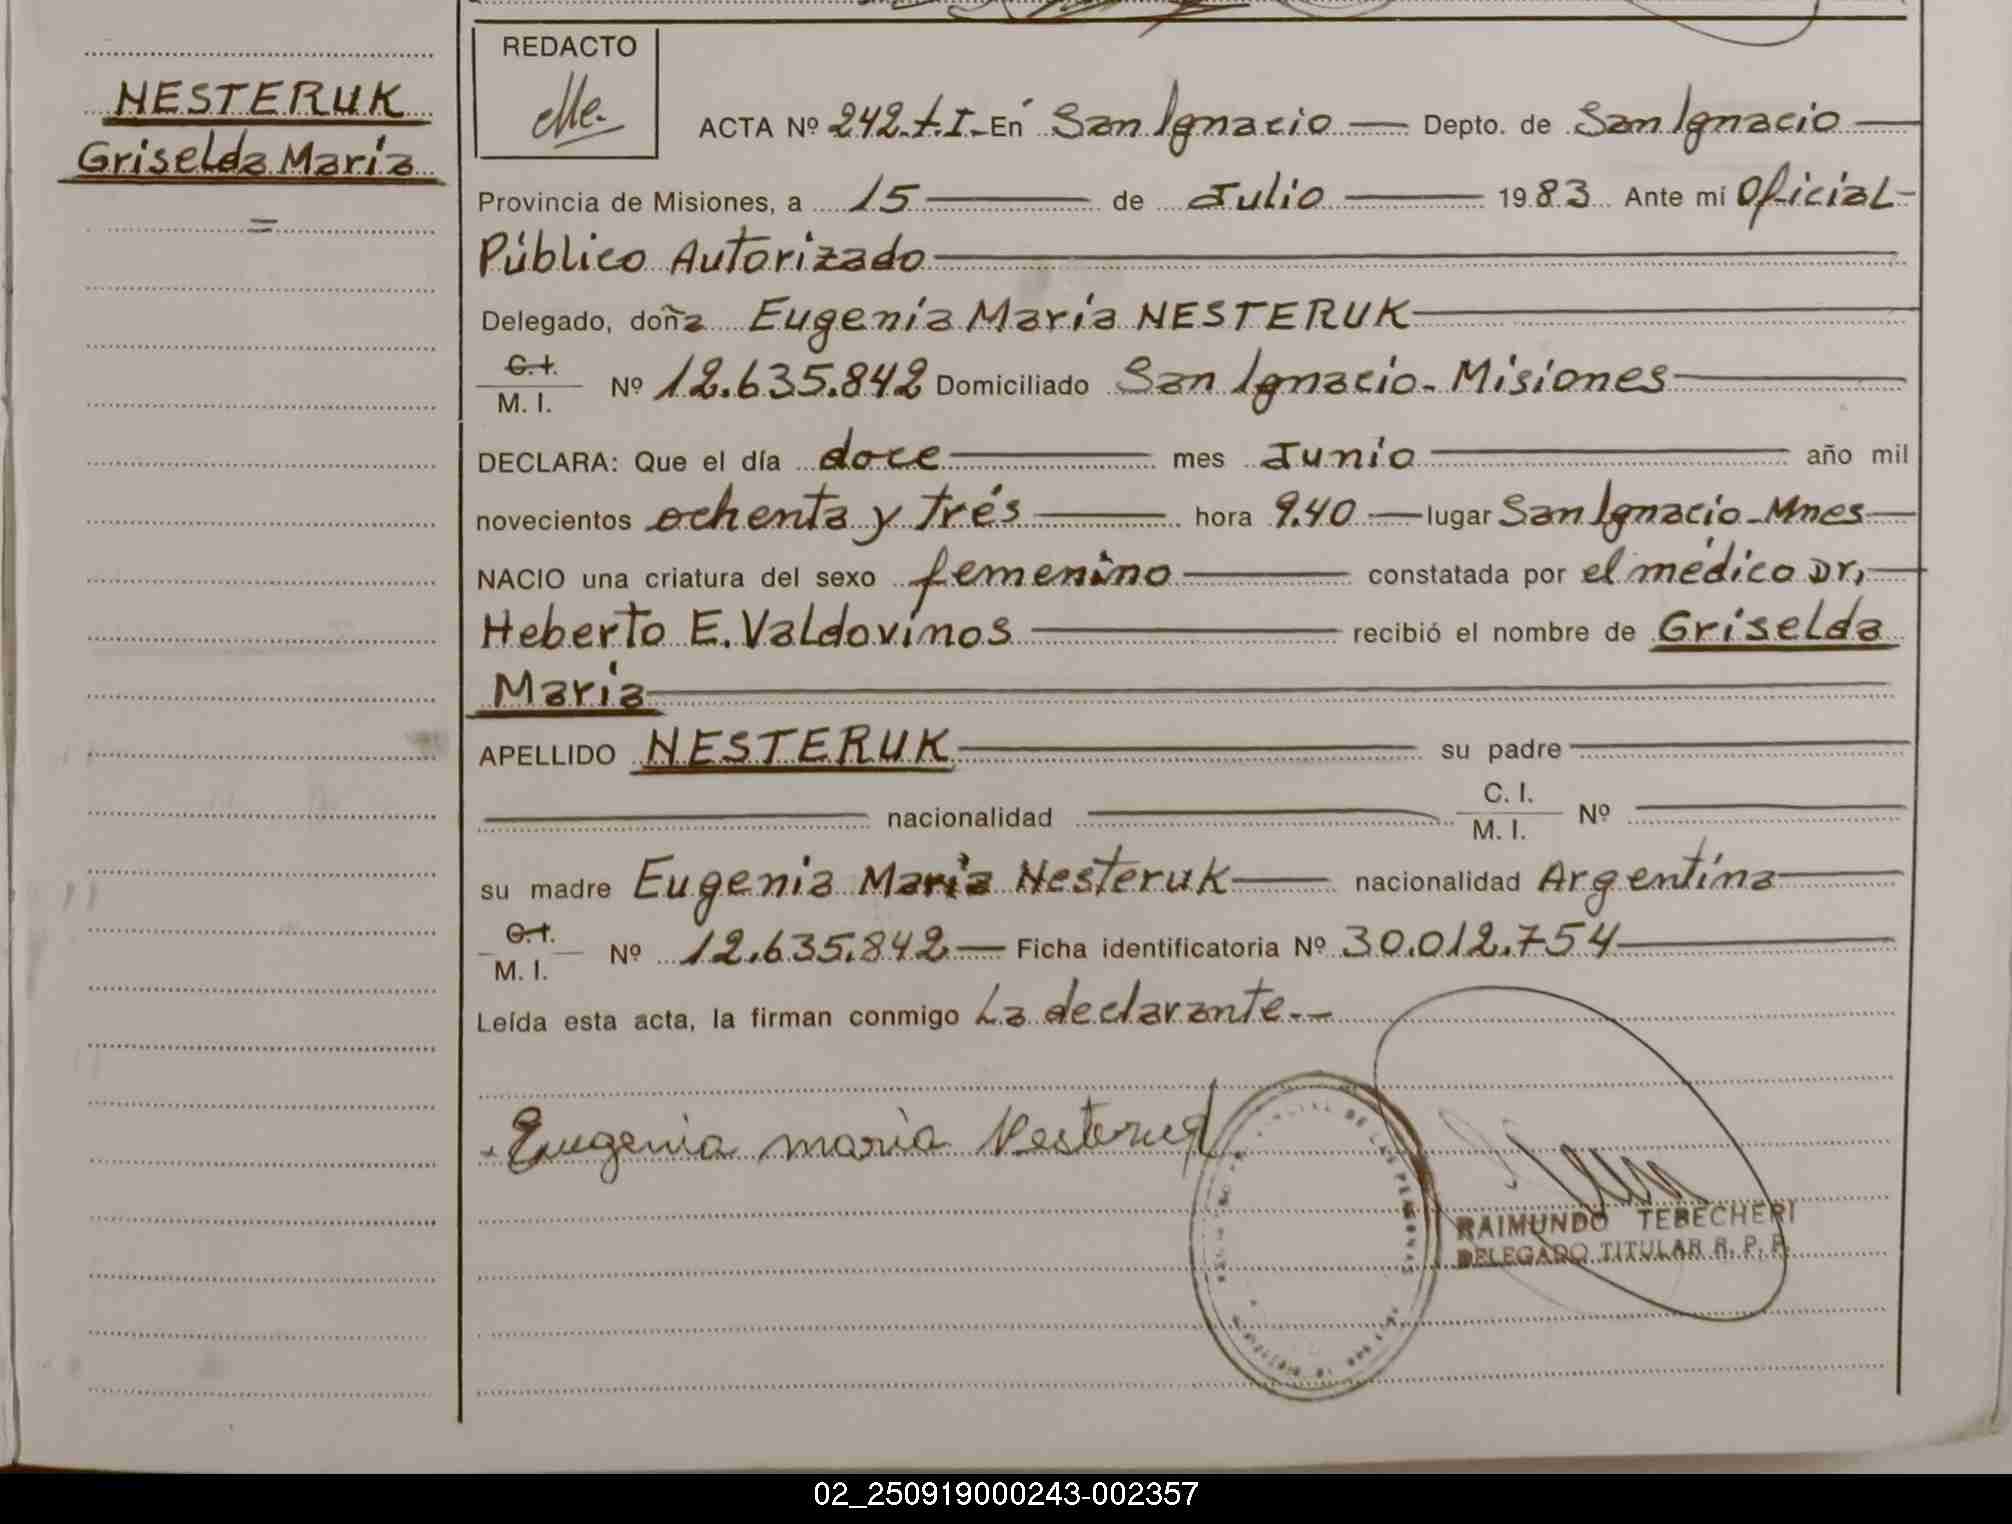 NESTERUK
Griselda María
=
REDACTO
ACTA Nº 242.t.I. En San Ignacio — Depto. de San Ignacio —
Provincia de Misiones, a 15 — de Julio — 1983 Ante mí Oficial
Público Autorizado —
Delegado, doña Eugenia María NESTERUK —
C.I. M. I. Nº 12.635.842 Domiciliado San Ignacio - Misiones —
DECLARA: Que el día doce — mes Junio — año mil
novecientos ochenta y trés — hora 9.40 — lugar San Ignacio - Mnes —
NACIO una criatura del sexo femenino — constatada por el médico Dr, —
Heberto E. Valdovinos — recibió el nombre de Griselda
María —
APELLIDO NESTERUK — su padre —
— nacionalidad — C. I. M. I. Nº —
su madre Eugenia María Nesteruk — nacionalidad Argentína —
C.I. M. I. Nº 12.635.842 — Ficha identificatoria Nº 30.012.754 —
Leída esta acta, la firman conmigo La declarante.--
Eugenia maria Nesteruk
DE LAS PERSONAS
RAIMUNDO TEBECHERI
DELEGADO TITULAR R. P. P.
02_250919000243-002357